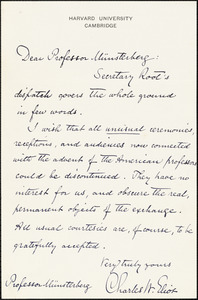 HARVARD UNIVERSITY
CAMBRIDGE
Dear Professor Münsterberg:
Secretary Root's
dispatch covers the whole ground
in few words.
I wish that all unusual ceremonies,
receptions, and audiences now connected
with the advent of the American professor
could be discontinued. They have no
interest for us, and obscure the real,
permanent objects of the exchange.
All usual courtesies are, of course, to be
gratefully accepted.
Very truly yours
Charles W. Eliot
Professor Münsterberg